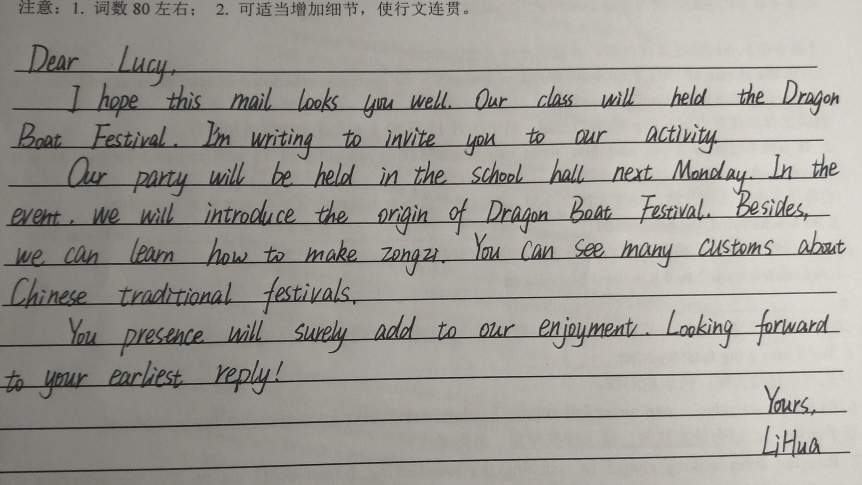 注意：1. 词数 80 左右； 2. 可适当增加细节，使行文连贯。
Dear Lucy,
I hope this mail looks you well. Our class will held the Dragon
Boat Festival. I'm writing to invite you to our activity.
Our party will be held in the school hall next Monday. In the
event. we will introduce the origin of Dragon Boat Festival. Besides,
we can learn how to make zongzi. You can see many customs about
Chinese traditional festivals.
You presence will surely add to our enjoyment. Looking forward
to your earliest reply!
Yours,
LiHua